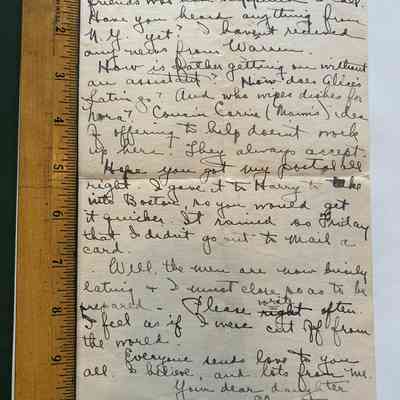 Have you heard anything from
N.Y. yet? I haven't received
any news from Warren.
How is father getting on without
an assistant? How does Alice's
Latin go? And who wipes dishes for
Nora? Cousin Carrie (Mamie's) idea
of offering to help doesn't work
up here. They always accept.
Hope you got my postal all
right. I gave it to Harry to take
into Boston, so you would get
it quicker. It rained so Friday
that I didn't go out to mail a
card.
Well, the men are now busily
eating + I must close so as to be
prepared. Please write right often.
I feel as if I were cut off from
the world.
Everyone sends love to you
all, I believe, and lots from me.
Your dear daughter
5
6
7
8
9